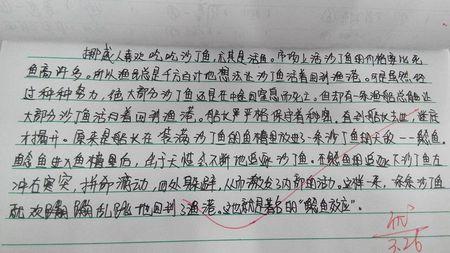 挪威人喜欢吃沙丁鱼,尤其是活鱼。市场上活沙丁鱼的价格要比死
鱼高许多。所以渔民总是千方百计地想法让沙丁鱼活着回到渔港。可是虽然经
过种种努力,绝大部分沙丁鱼还是在中途因窒息而死亡。但却有一条渔船总能让
大部分沙丁鱼活着回到渔港。船长严格保守着秘密,直到船长去世,谜底
才揭开。原来是船长在装满沙丁鱼的鱼槽里放进了一条沙丁鱼的天敌——鲶鱼。
鲶鱼进入鱼槽里后,由于天性会不断地追逐沙丁鱼。在鲶鱼的追逐下沙丁鱼左
冲右突,拼命游动,四处躲避,从而激发了内部的活力。这样一来,条条沙丁鱼
就欢蹦乱跳地回到了渔港。这也就是著名的“鲶鱼效应”。
优
3.26